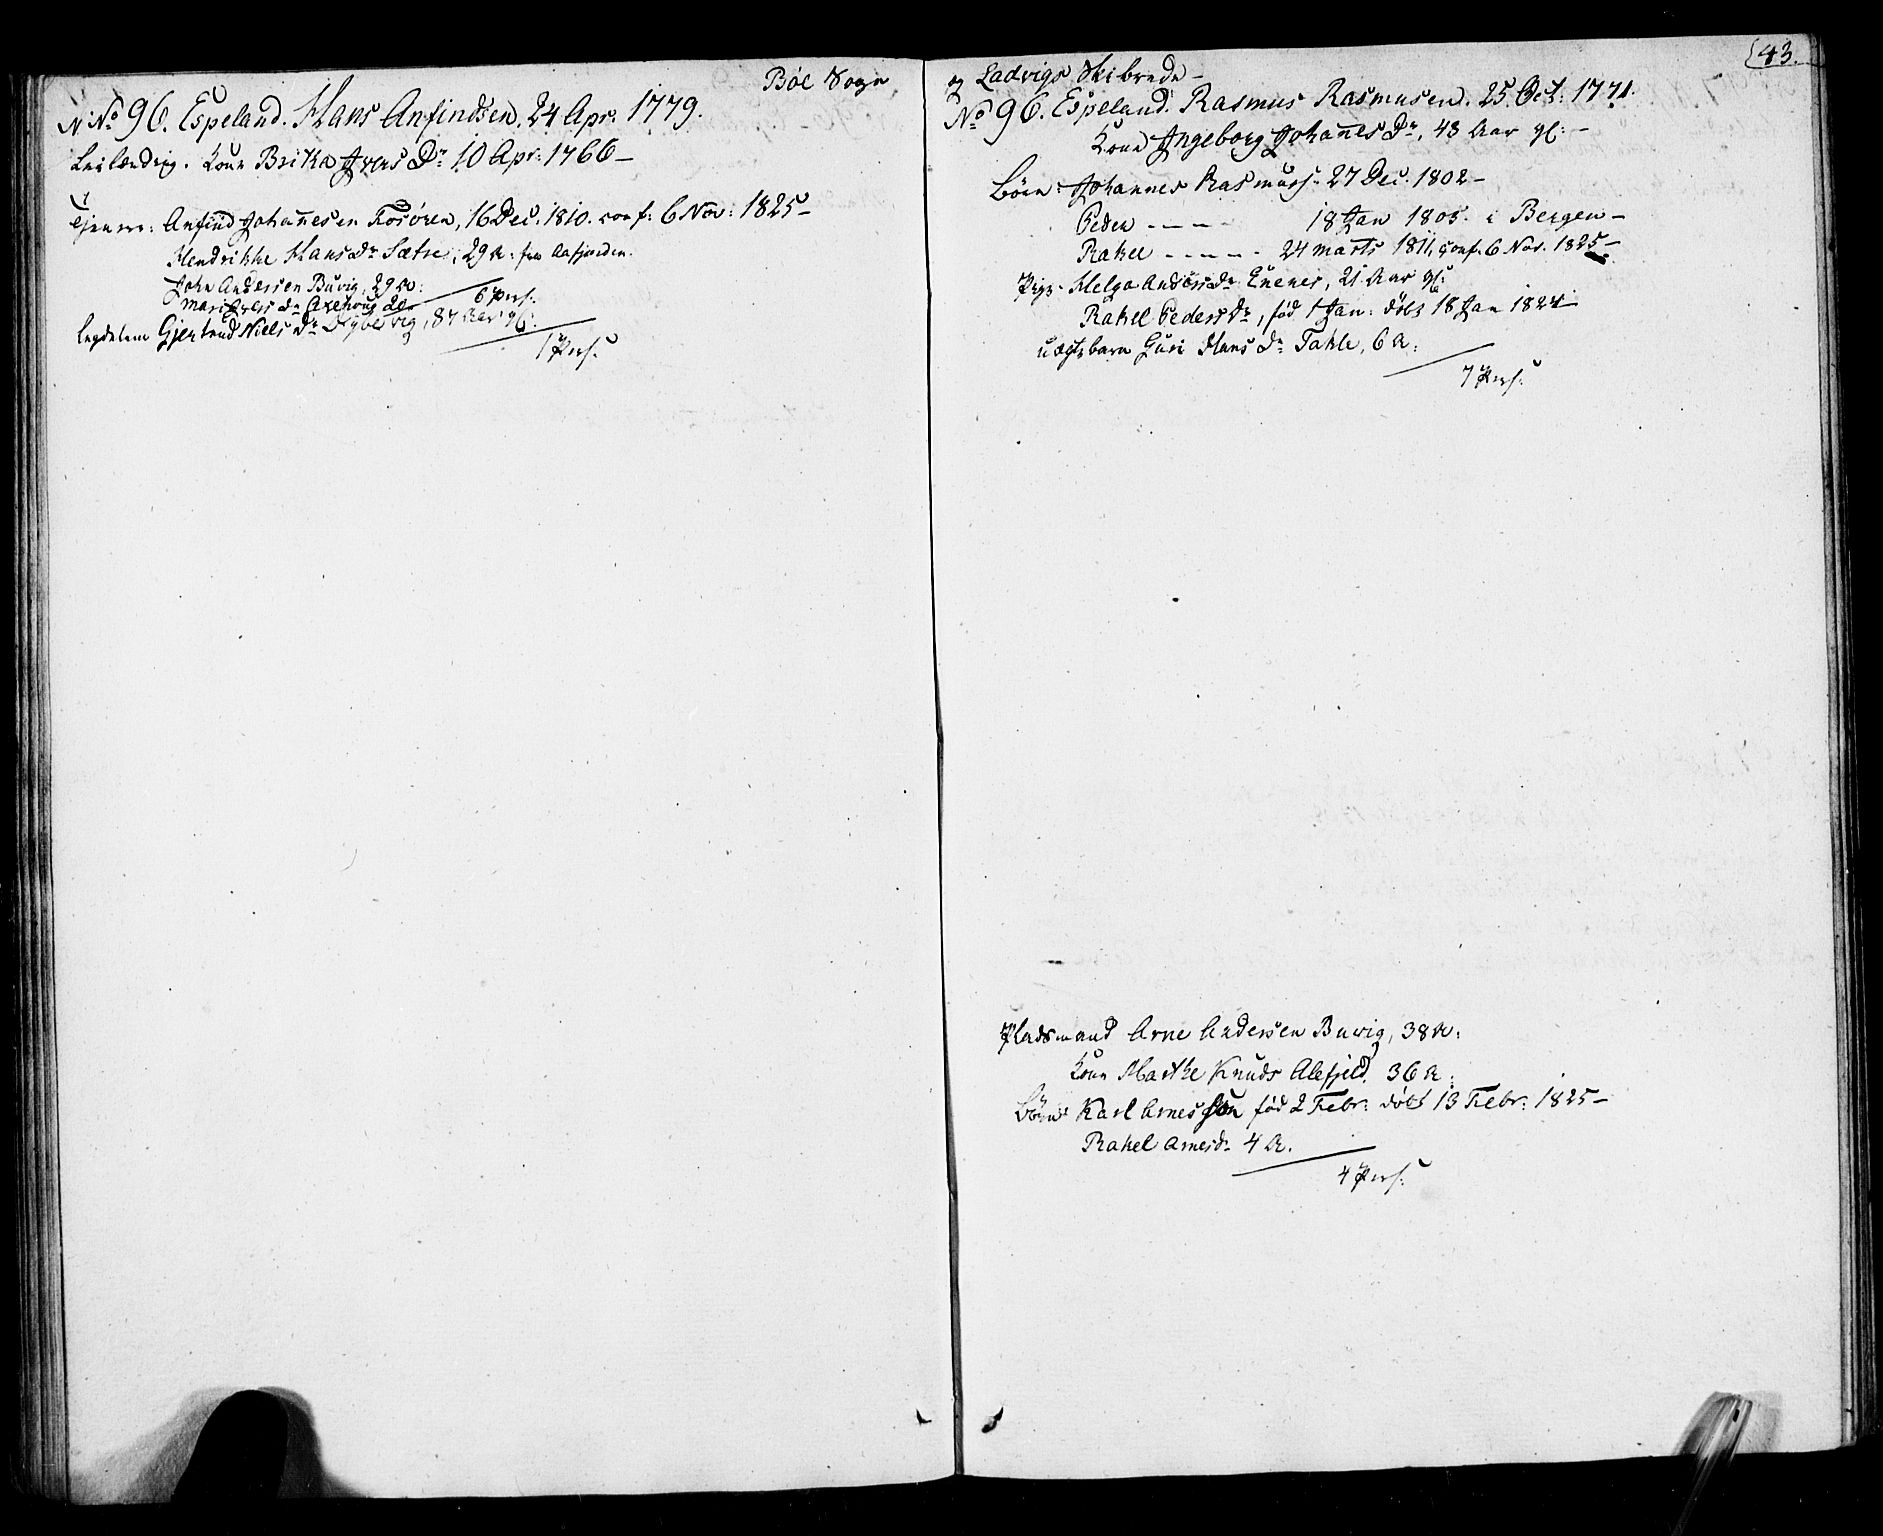 Böe Sogn
N No 96. Espeland. Hans Anfindsen. 24 Apr: 1779.
Leilændig. Kone Britha Ivers Dr 10 Apr: 1766 –
Tjenere: Anfind Johannesen Kosören, 16 Dec. 1810. conf: 6 Nov: 1825 –
Hendrikke Hansdr Sætre, 29 A: fra Aafjorden.
John Andersen Buvig, 29 A:
Mari dr 20
6 Pers:
Legdelem Gjertrud Niels Dr Dybevig, 84 Aar gl:
1 Pers:
43.
og Ladvigs Skibrede –
No 96. Espeland. Rasmus Rasmusen. 25 Oct: 1771.
Kone Ingeborg Johannes Dr, 43 Aar gl: –
Börn: Johannes Rasmuss: 27 Dec. 1802 –
Peder - - - - 18 Jan 1805. i Bergen –
Rakel - - - - - 24 Marts 1811, conf. 6 Nov. 1825 –
Pige - Helga Andersdr Enenes, 21 Aar gl:
Rakel Peders Dr, föd 1 Jan: döbt 18 Jan 1824
uægte barn Guri Hans dr Takle, 6 A:
7 Pers:
Pladsmand Arne Andersen Buvig, 38 A:
Kone Marthe Knuds Alefjeld. 36 A:
Börn: Karl Arnes Sön föd 2 Febr: döbt 13 Febr: 1825 –
Rakel Arnesdr 4 A.
4 Pers: